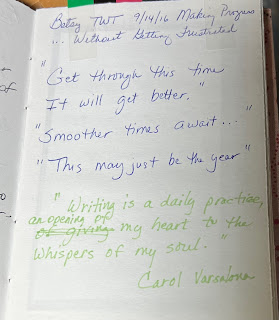 Betsy TWT 9/14/16 Making Progress
... Without Getting Frustrated
"Get through this time
It will get better."
"Smoother times await...."
"This may just be the year"
"Writing is a daily practice,
an opening of
of giving my heart to the
whispers of my soul."
Carol Varsalona
of